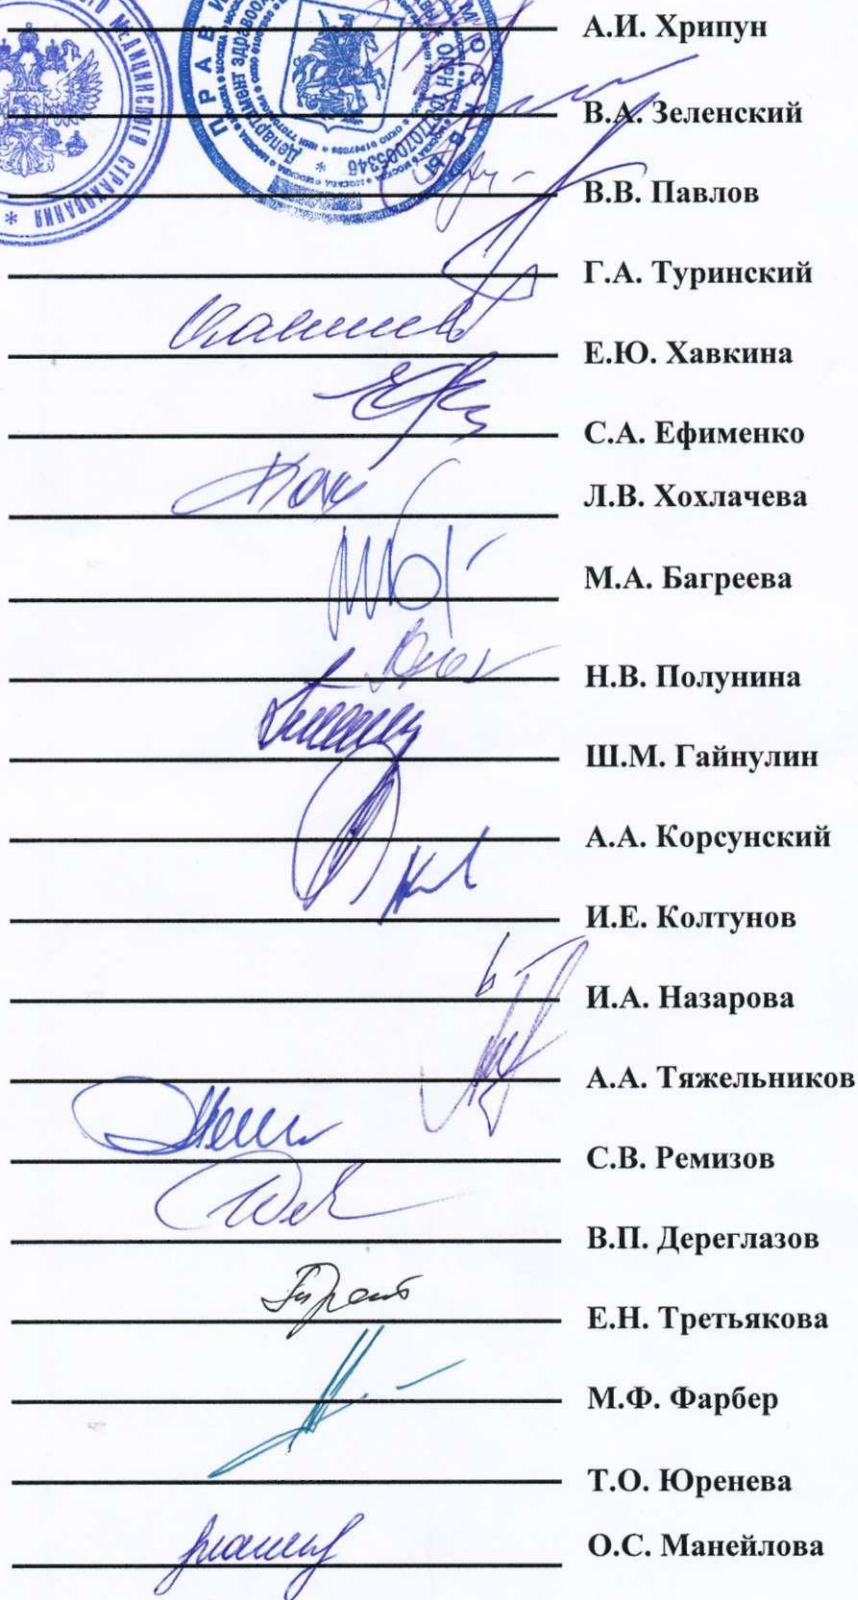 МЕДИЦИНСКОГО СТРАХОВАНИЯ *
Департамент
А.И. Хрипун
В.А. Зеленский
В.В. Павлов
Г.А. Туринский
Е.Ю. Хавкина
С.А. Ефименко
Л.В. Хохлачева
М.А. Багреева
Н.В. Полунина
Ш.М. Гайнулин
А.А. Корсунский
И.Е. Колтунов
И.А. Назарова
А.А. Тяжельников
С.В. Ремизов
В.П. Дереглазов
Е.Н. Третьякова
М.Ф. Фарбер
Т.О. Юренева
О.С. Манейлова